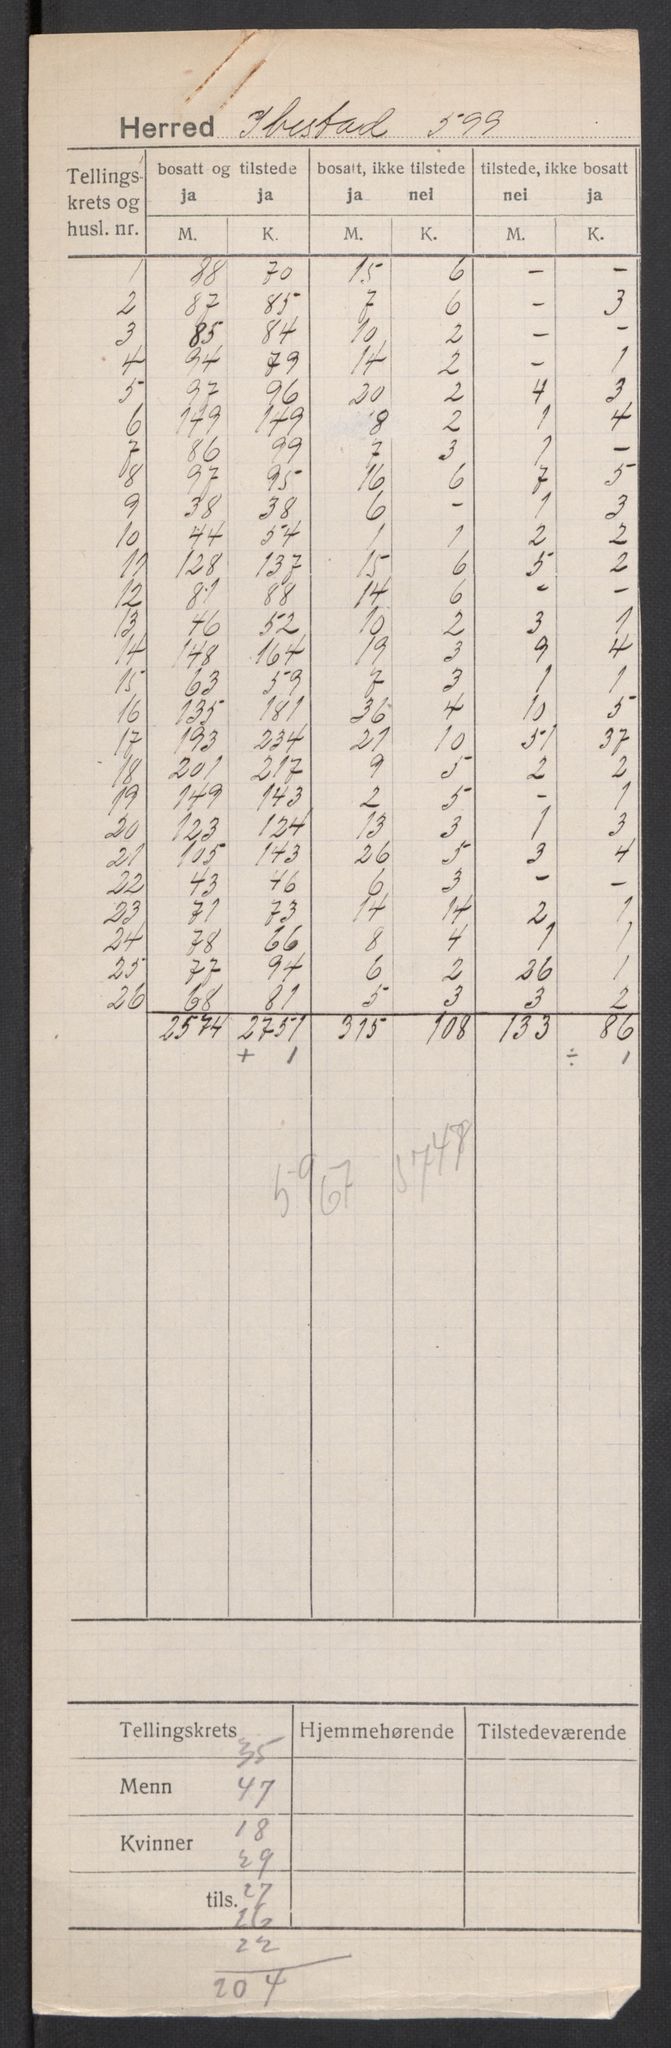 Herred Ibestad 599
Tellings- krets og husl. nr. | bosatt og tilstede | bosatt, ikke tilstede | tilstede, ikke bosatt
ja ja | ja nei | nei ja
M. K. M. K. M. K.
1 88 70 15 6 - -
2 87 85 7 6 - 3
3 85 84 10 2 - -
4 94 79 14 2 - 1
5 97 96 20 2 4 3
6 149 149 8 2 1 4
7 86 99 7 3 1 -
8 97 95 16 6 7 5
9 38 38 6 - 1 3
10 44 54 1 1 2 2
11 128 137 15 6 5 2
12 81 88 14 6 - -
13 46 52 10 2 3 1
14 148 164 19 3 9 4
15 63 59 7 3 1 1
16 135 181 36 4 10 5
17 193 234 21 10 51 37
18 201 217 9 5 2 2
19 149 143 2 5 - 1
20 123 124 13 3 1 3
21 105 143 26 5 3 4
22 43 46 6 3 - -
23 71 73 14 14 2 1
24 78 66 8 4 1 1
25 77 94 6 2 26 1
26 68 81 5 3 3 2
2574 2751 315 108 133 86
+ 1 ÷ 1
5967 5748
Tellingskrets Hjemmehørende Tilstedeværende
35
Menn 47
18
Kvinner
29
tils. 27
26
22
204